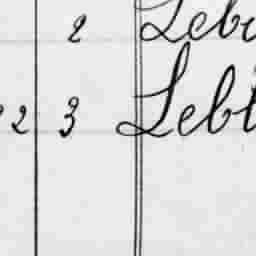 2 Leb
2 3 Leb